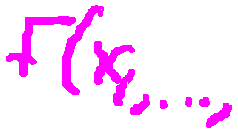 f(x₁, ...,